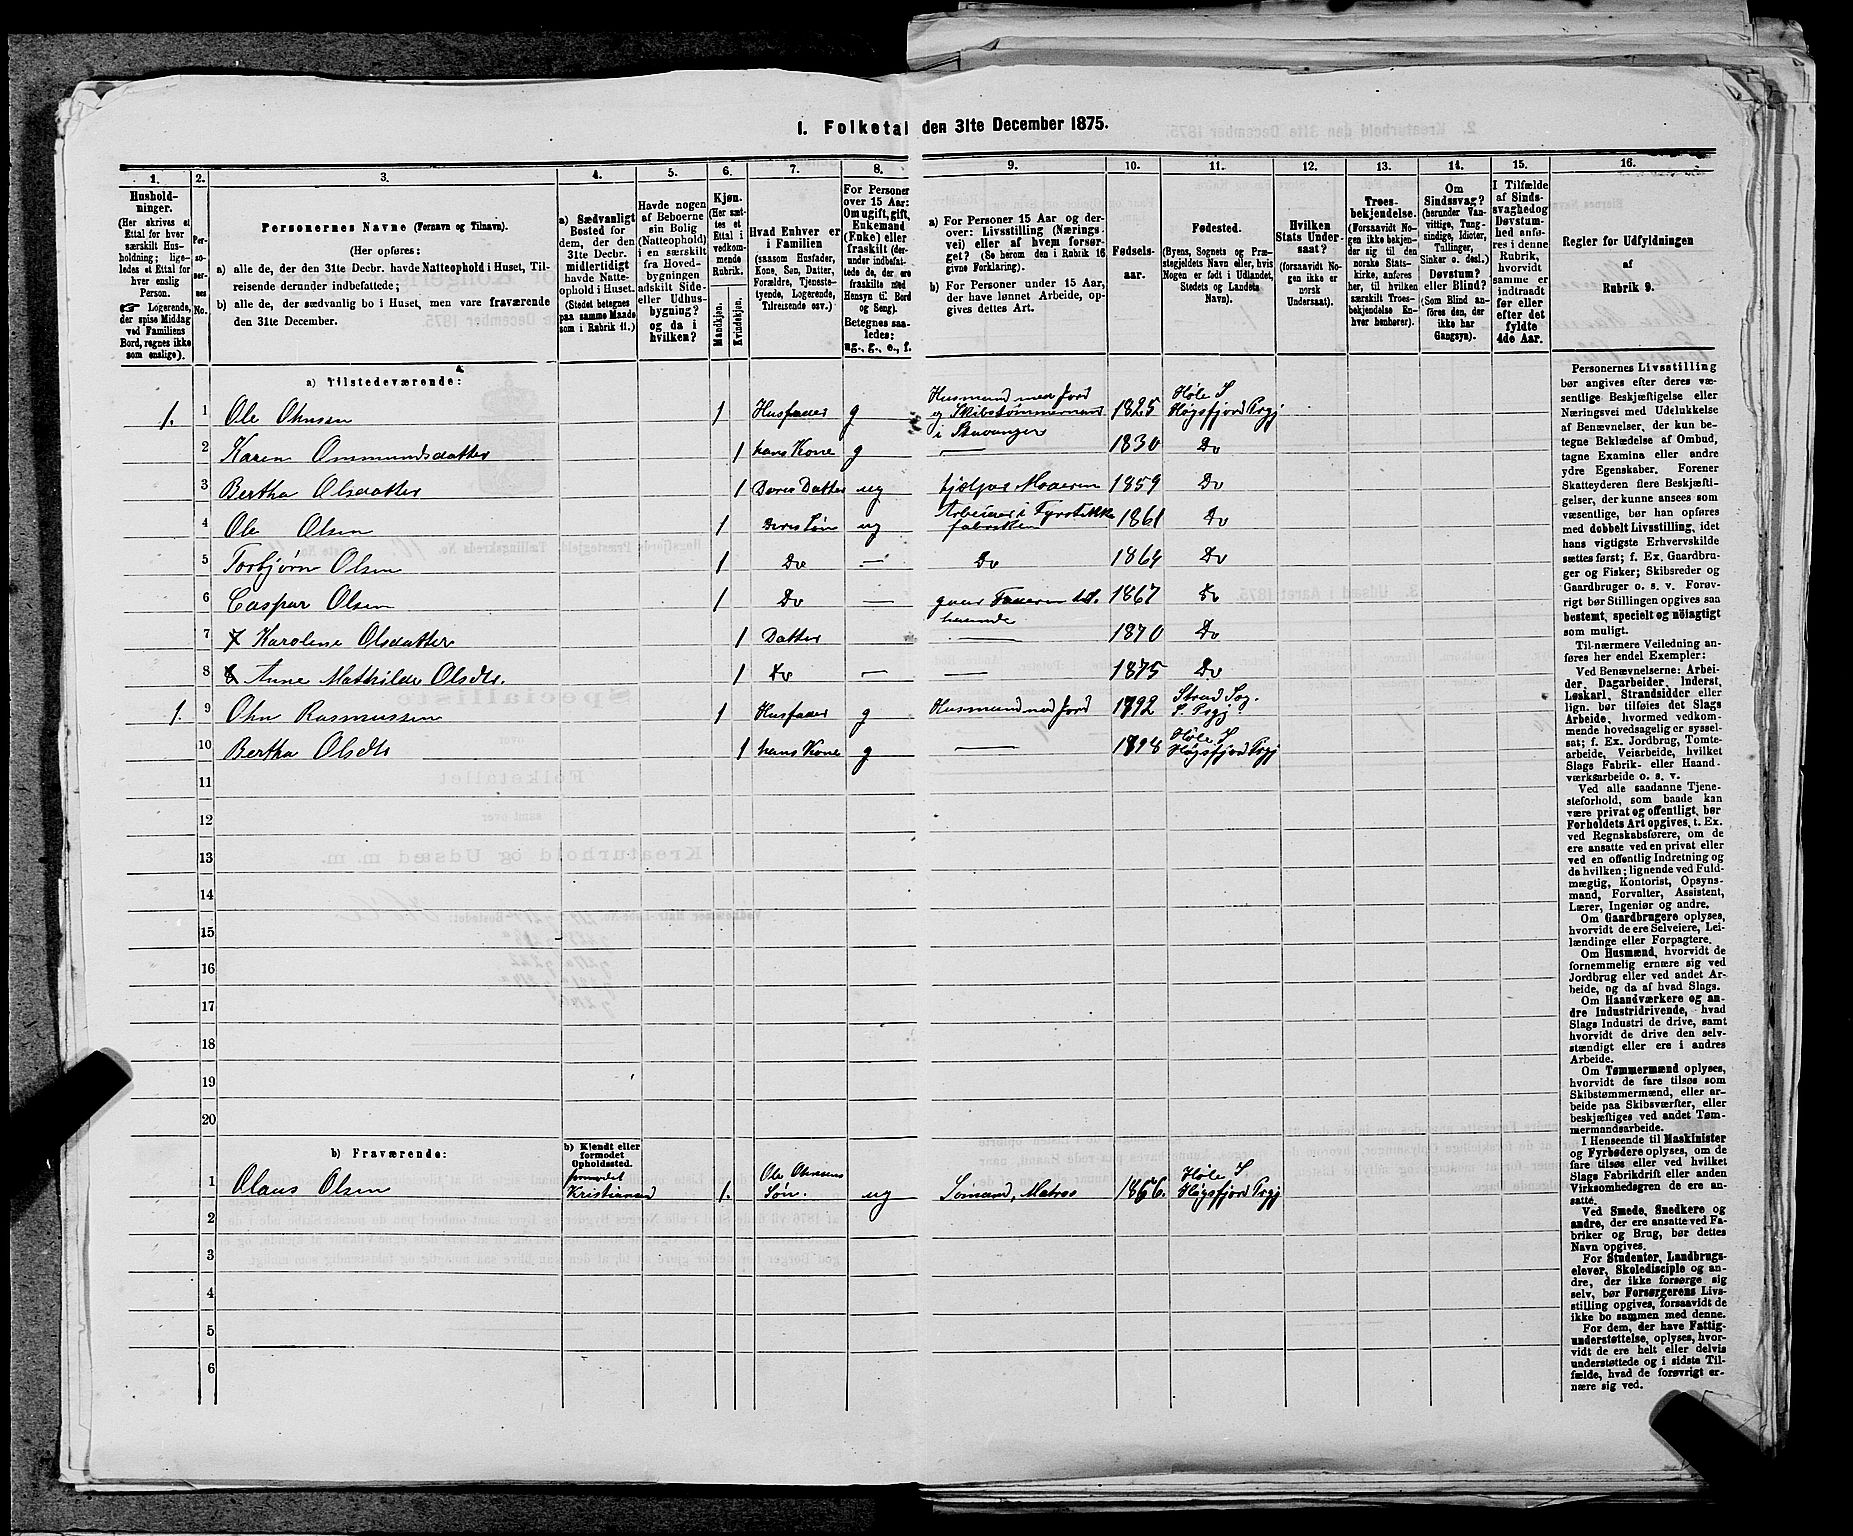 1. Folketal den 31te December 1875.
1.
2.
3.
4.
5.
6.
7.
8.
9.
10.
11.
12.
13.
14.
15.
16.
Husholdninger.
(Her skrives et
Ettal for hver
særskilt Husholdning; ligeledes et Ettal for
hver enslig
Person.
Logerende,
der spise Middag
ved Familiens
Bord, regnes ikke
som enslige).
Personernes
No.
Personernes Navne (Fornavn og Tilnavn).
(Her opføres:
a) alle de, der den 31te Decbr. havde Natteophold i Huset, Tilreisende derunder indbefattede;
b) alle de, der sædvanlig bo i Huset, men vare fraværende
den 31te December.
a) Sædvanligt
Bosted for
dem, der den
31te Decbr.
midlertidigt
havde Natteophold i Huset.
(Stedet betegnes
paa samme Maade
som i Rubrik 11.)
Havde nogen
af Beboerne
sin Bolig
(Natteophold)
i en særskilt
fra Hovedbygningen
adskilt Side-
eller Udhusbygning?
og da i
hvilken?
Kjøn.
(Her sættes et
Ettal i
vedkommende
Rubrik.
Mandkjøn.
Kvindekjøn.
Hvad Enhver er
i Familien
(saasom Husfader,
Kone, Søn, Datter,
Forældre, Tjenestetyende, Logerende,
Tilreisende osv.)
For Personer
over 15 Aar:
Om ugift, gift,
Enkemand
(Enke) eller
fraskilt (derunder indbefattede de, der ere
fraskilte med
Hensyn til Bord
og Seng).
Betegnes saaledes:
ug., g., e., f.
a) For Personer 15 Aar og derover: Livsstilling (Næringsvei) eller af hvem forsørget? (Se herom den i Rubrik 16
givne Forklaring).
b) For Personer under 15 Aar,
der have lønnet Arbeide, opgives dettes Art.
Fødselsaar.
Fødested.
(Byens, Sognets og Præstegjeldets Navn eller, hvis
Nogen er født i Udlandet,
Stedets og Landets
Navn).
Hvilken
Stats Undersaat?
(forsaavidt Nogen ikke er
norsk
Undersaat).
Troesbekjendelse.
(Forsaavidt Nogen ikke bekjender sig til den
norske Statskirke, anføres
her, til hvilken
særskilt Troesbekjendelse Enhver henhører).
Om
Sindssvag?
(herunder Vanvittige, Tungsindige, Idioter,
Tullinger,
Sinker o. desl.)
Døvstum?
eller Blind?
(Som Blind anføres den, der
ikke har
Gangsyn).
I Tilfælde
af Sindssvaghed og
Døvstumhed anføres
i denne
Rubrik,
hvorvidt
samme er
indtraadt
før eller
efter det
fyldte
4de Aar.
Regler for Udfyldningen
af
Rubrik 9.
a) Tilstedeværende:
1. 1 Ole Ohnsen 1 Husfader g Husmand med Jord
og Skibstømmermand
i Stavanger 1825 Høle S
Høgsfjord Prgj
2 Karen Ommundsdatter 1 hans Kone g — 1830 Do
3 Bertha Olsdatter 1 Deres Datter ug hjælper Moderen 1859 Do
4 Ole Olsen 1 Deres Søn ug Arbeider i Fyrstikkefabriken 1861 Do
5 Torbjørn Olsen 1 Do — Do 1864 Do
6 Caspar Olsen 1 Do — gaar Faderen til
haande 1867 Do
7 Karoline Olsdatter 1 Datter — 1870 Do
8 Anne Mathilde Olsdtr. 1 Do — — 1875 Do
1. 9 Ohn Rasmussen 1 Husfader g Husmand med Jord 1792 Strand Sog.
S. Prgj
10 Bertha Olsdtr 1 hans Kone g — 1798 Høle S
Høgsfjord Prgj
11
12
13
14
15
16
17
18
19
20
b) Fraværende:
b) Kjendt eller
formodet
Opholdssted.
1 Olaus Olsen formodet
Kristiansand 1. Ole Ohnsens
Søn. ug Sømand, Matros 1856. Høle S
Høgsfjord Prgj
2
3
4
5
6
Personernes Livsstilling
bør angives efter deres væsentlige Beskjæftigelse eller
Næringsvei med Udelukkelse
af Benævnelser, der kun betegne Beklædelse af Ombud,
tagne Examina eller andre
ydre Egenskaber. Forener
Skatteyderen flere Beskjæftigelser, der kunne ansees som
væsentlige, bør han opføres
med dobbelt Livsstilling, idet
hans vigtigste Erhvervskilde
sættes først; f. Ex. Gaardbruger og Fisker; Skibsreder og
Gaardbruger o. s. v. Forøvrigt bør Stillingen opgives saa
bestemt, specielt og nöiagtigt
som muligt.
Til nærmere Veiledning anføres her endel Exempler:
Ved Benævnelserne: Arbeider, Dagarbeider, Inderst,
Løskarl, Strandsidder eller
lign. bør tilføies det Slags
Arbeide, hvormed vedkommende hovedsagelig er sysselsat; f. Ex. Jordbrug, Tomtearbeide, Veiarbeide, hvilket
Slags Fabrik- eller Haandværksarbeide o. s. v.
Ved alle saadanne Tjenesteforhold, som baade kan
være privat og offentligt, bør
Forholdets Art opgives, t. Ex.
ved Regnskabsførere, om de
ere ansatte ved en privat eller
ved en offentlig Indretning og
da hvilken; lignende ved Fuldmægtig, Kontorist, Opsynsmand, Forvalter, Assistent,
Lærer, Ingeniør og andre.
Om Gaardbrugere oplyses,
hvorvidt de ere Selveiere, Leilændinge eller Forpagtere.
Om Husmænd, hvorvidt de
fornemmelig ernære sig ved
Jordbrug eller ved andet Arbeide, og da af hvad Slags.
Om Haandværkere og andre Industridrivende, hvad
Slags Industri de drive, samt
hvorvidt de drive den selvstændigt eller ere i andres
Arbeide.
Om Tømmermænd oplyses,
hvorvidt de fare tilsøs som
Skibstømmermænd, eller arbeide paa Skibsværfter, eller
beskjæftiges ved andet Tømmermandsarbeide.
I Henseende til Maskinister
og Fyrbødere oplyses, om de
fare tilsøs eller ved hvilket
Slags Fabrikdrift eller anden
Virksomhedsgren de ere ansatte.
Ved Smede, Snedkere og
andre, der ere ansatte ved Fabriker og Brug, bør dettes
Navn opgives.
For Studenter, Landbrugselever, Skoledisciple og andre, der ikke forsørge sig
selv, bør Forsørgerens Livsstilling opgives, forsaavidt de
ikke bo sammen med denne.
For dem, der have Fattigunderstøttelse, oplyses, hvorvidt de ere helt eller delvis
understøttede og i sidste Tilfælde, hvad de forøvrigt ernære sig ved.